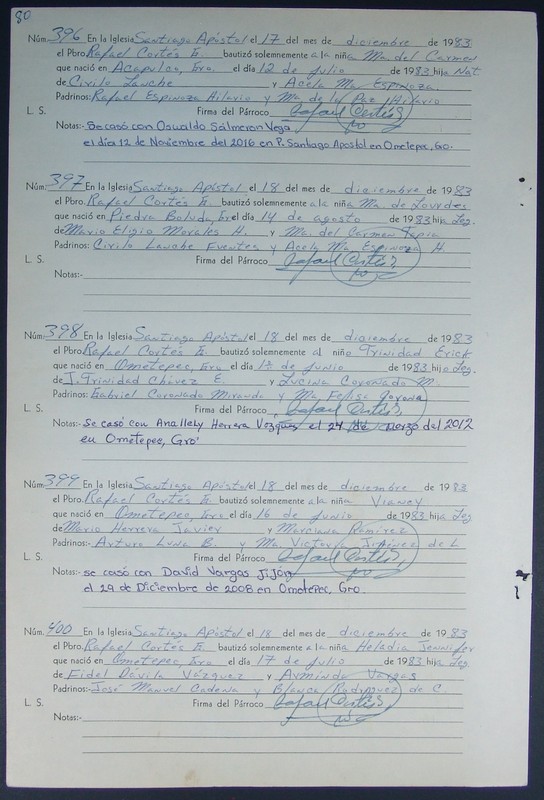 80
Núm. 396 En la Iglesia Santiago Apóstol el 17 del mes de diciembre de 1983
el Pbro. Rafael Cortés E. bautizó solemnemente a la niña Ma. del Carmen
que nació en Acapulco, Gro. el día 12 de julio de 1983 hija Nat
de Cirilo Lanche y Acela Ma. Espinoza
Padrinos: Rafael Espinoza Hilario y Ma de la Paz Hilario
L. S. Firma del Párroco Rafael Cortés
Notas:- Se casó con Oswaldo Salmeron Vega
el día 12 de Noviembre del 2016 en P. Santiago Apostol en Ometepec, Gro.
Núm. 397 En la Iglesia Santiago Apóstol el 18 del mes de diciembre de 1983
el Pbro. Rafael Cortés E. bautizó solemnemente a la niña Ma. de Lourdes
que nació en Piedra Boluda, Gro el día 14 de agosto de 1983 hija Leg.
de Mario Eligio Morales H. y Ma. del Carmen Tapia
Padrinos: Cirilo Lanche Fuentes y Acela Ma. Espinoza H
L. S. Firma del Párroco Rafael Cortés
Notas:-
Núm. 398 En la Iglesia Santiago Apóstol el 18 del mes de diciembre de 1983
el Pbro. Rafael Cortés E. bautizó solemnemente al niño Trinidad Erick
que nació en Ometepec, Gro el día de junio de 1983 hijo Leg.
de J. Trinidad Chávez E. y Lucina Coronado M.
Padrinos: Gabriel Coronado Miranda y Ma. Felisa
L. S. Firma del Párroco Rafael Cortés
Notas:- Se casó con Anallely Herrera Vázquez el 24 Marzo del 2012
en Ometepec, Gro.
Núm. 399 En la Iglesia Santiago Apóstol el 18 del mes de diciembre de 1983
el Pbro. Rafael Cortés E. bautizó solemnemente a la niña Vianey
que nació en Ometepec, Gro el día 16 de junio de 1983 hija Leg
de Mario Herrera Javier y Marciana Ramírez
Padrinos:- Arturo Luna B. y Ma. Victoria Jiménez de L
L. S. Firma del Párroco Rafael Cortés
Notas:- se casó con David Vargas Jijón
el 29 de Diciembre de 2008 en Ometepec, Gro.
Núm. 400 En la Iglesia Santiago Apóstol el 18 del mes de diciembre de 1983
el Pbro. Rafael Cortés E. bautizó solemnemente a la niña Heladia Jennifer
que nació en Ometepec, Gro el día 17 de julio de 1983 hija Leg.
de Fidel Dávila Vázquez y Arminda Vargas
Padrinos:- José Manuel Cadena y Blanca Rodríguez de C.
L. S. Firma del Párroco Rafael Cortés
Notas:-